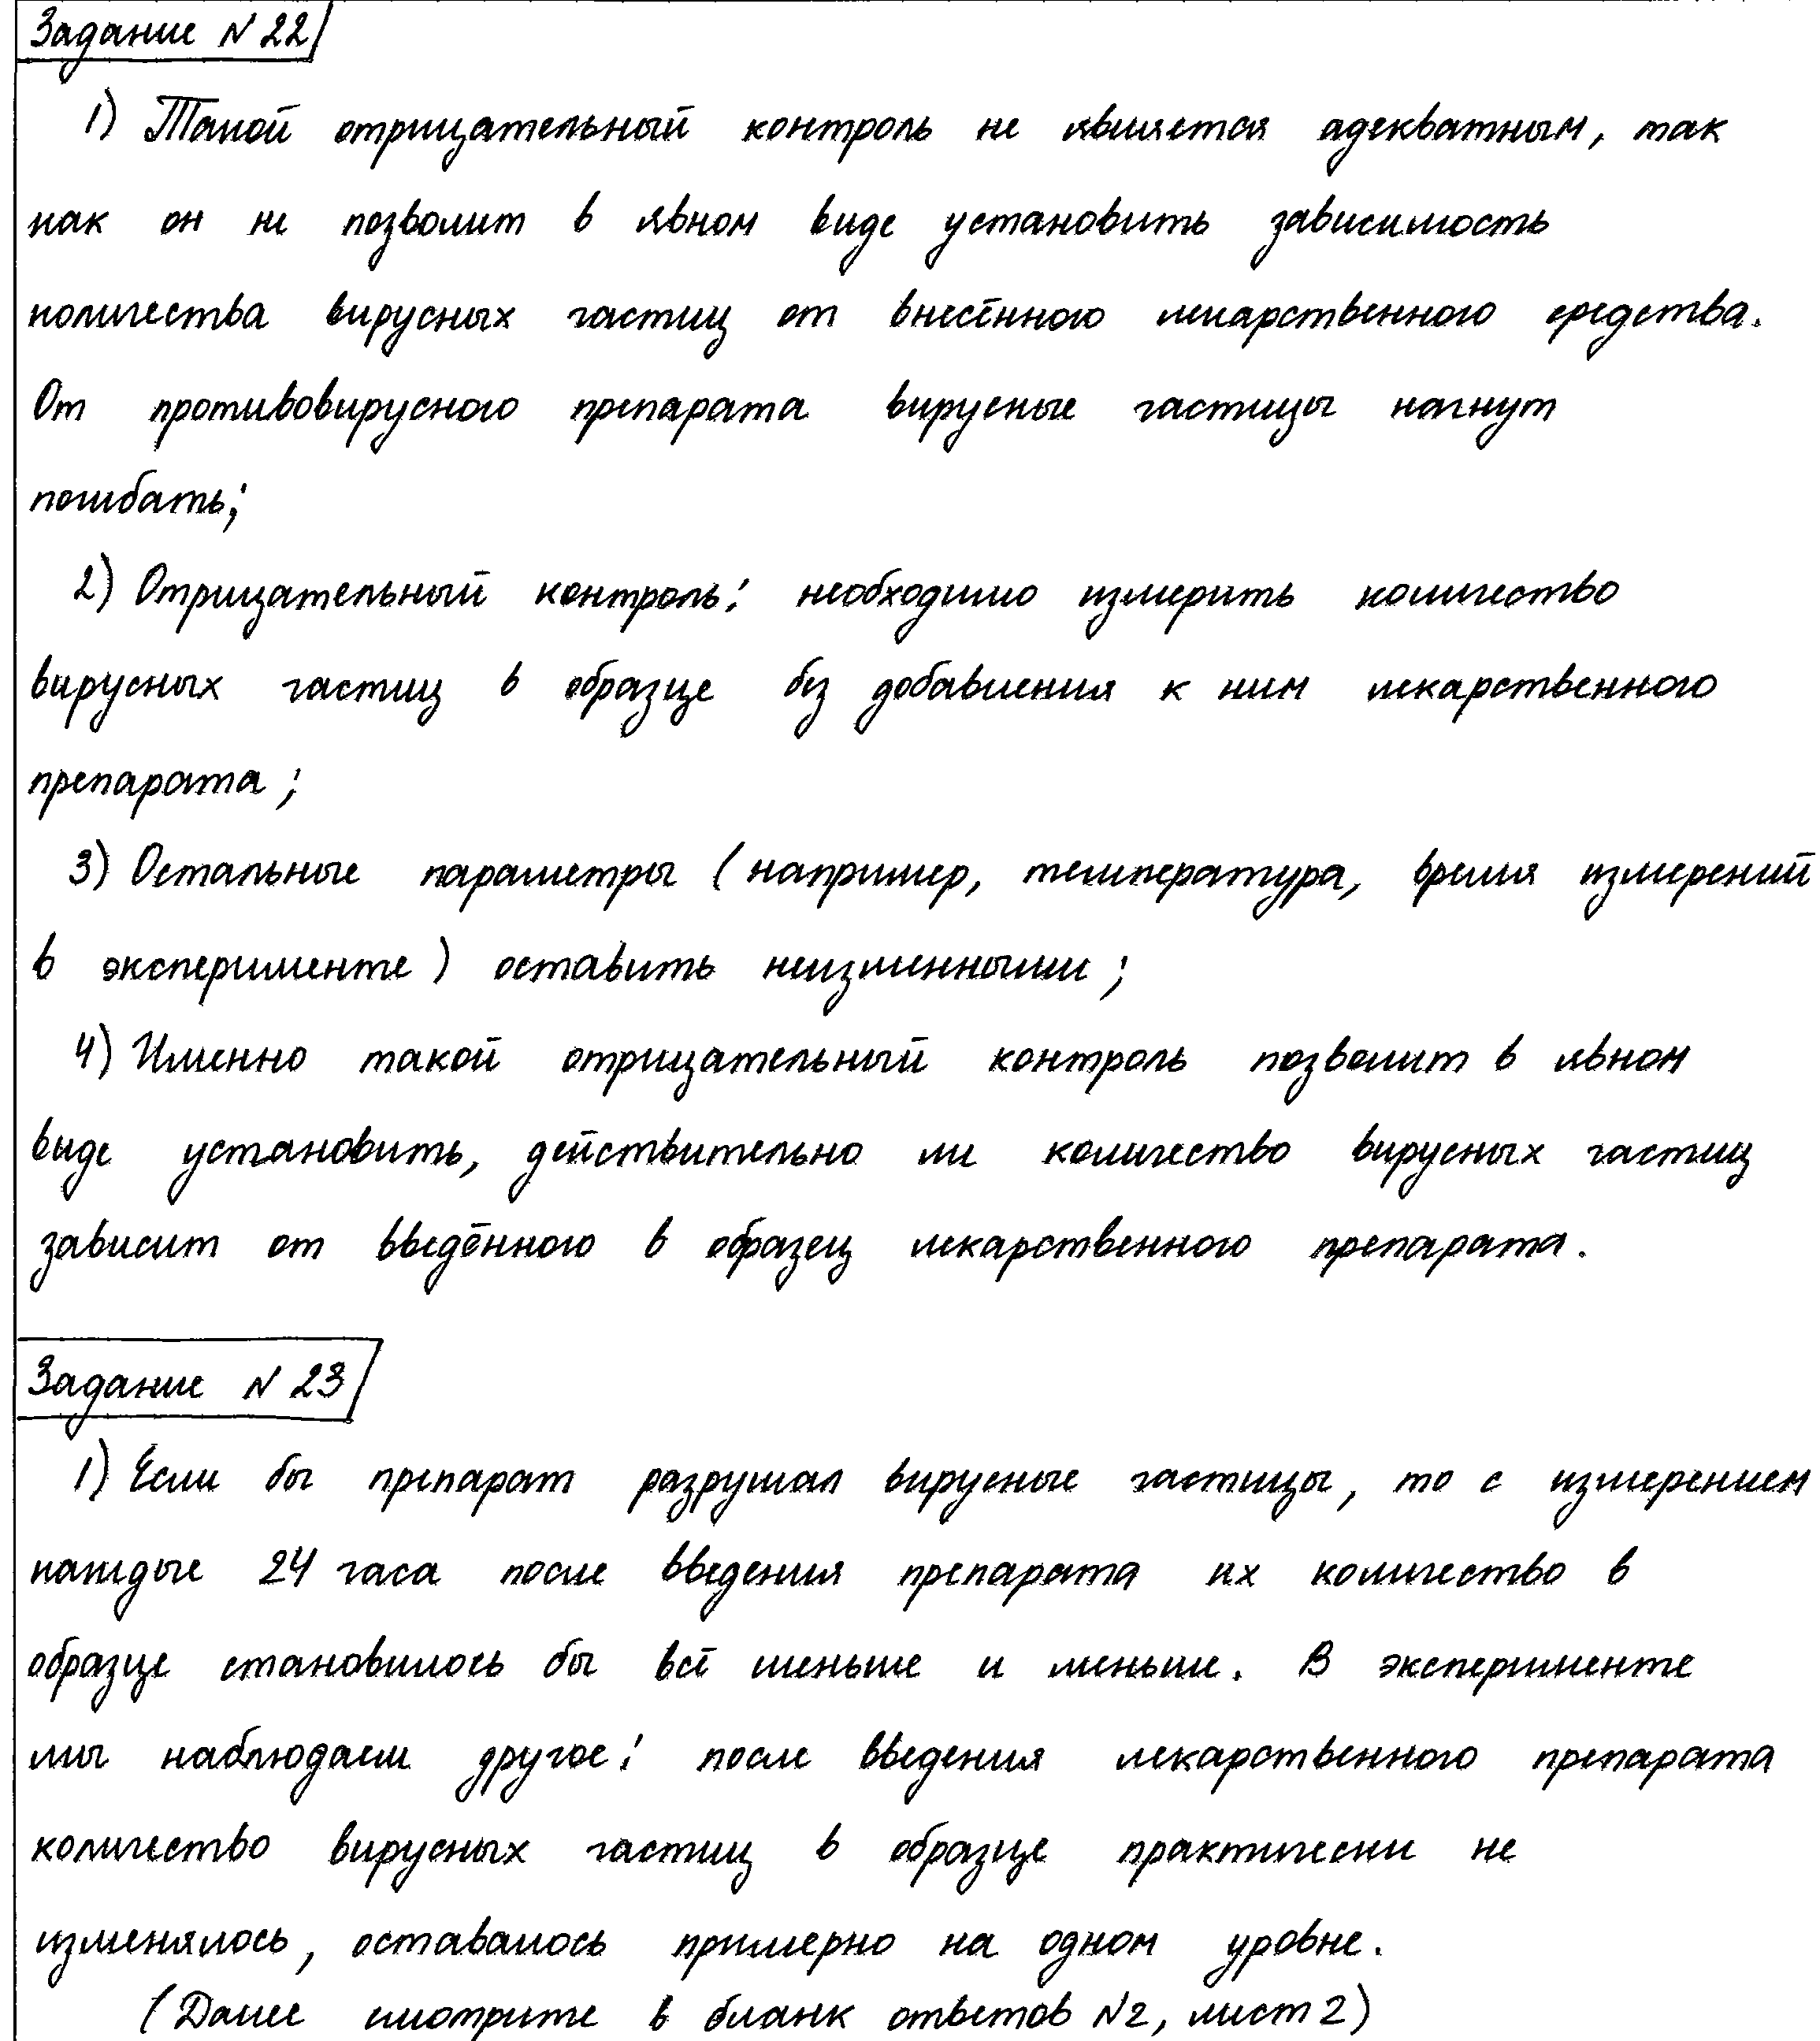 Задание N 22
1) Такой отрицательный контроль не является адекватным, так
как он не позволит в явном виде установить зависимость
количества вирусных частиц от внесённого лекарственного средства.
От противовирусного препарата вирусные частицы начнут
погибать;
2) Отрицательный контроль: необходимо измерить количество
вирусных частиц в образце без добавления к ним лекарственного
препарата;
3) Остальные параметры (например, температура, время измерений
в эксперименте) оставить неизменными;
4) Именно такой отрицательный контроль позволит в явном
виде установить, действительно ли количество вирусных частиц
зависит от введённого в образец лекарственного препарата.
Задание N 23
1) Если бы препарат разрушал вирусные частицы, то с измерением
каждые 24 часа после введения препарата их количество в
образце становилось бы всё меньше и меньше. В эксперименте
мы наблюдаем другое: после введения лекарственного препарата
количество вирусных частиц в образце практически не
изменялось, оставалось примерно на одном уровне.
(Далее смотрите в бланк ответов N2, лист 2)